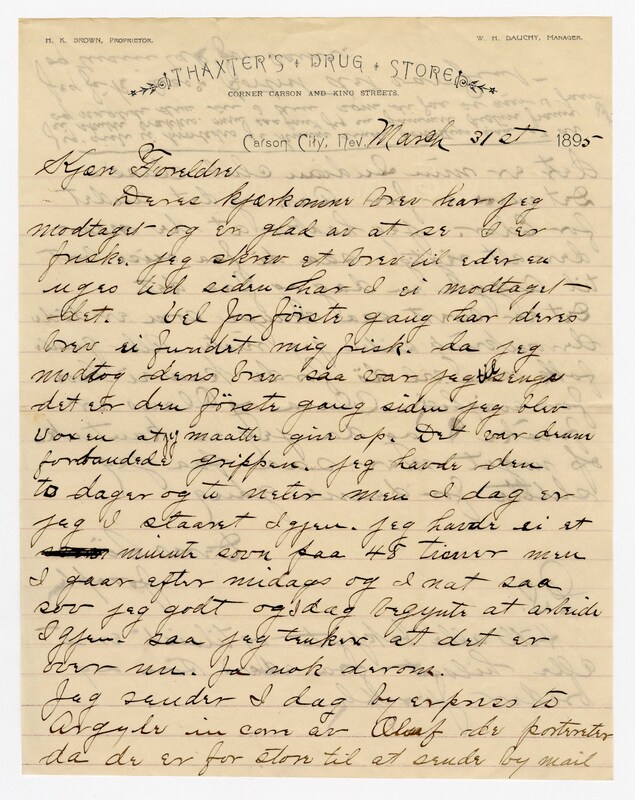 H. K. BROWN, PROPRIETOR.
W. H. DAUCHY, MANAGER.
THAXTER'S DRUG STORE
CORNER CARSON AND KING STREETS.
Carson City, Nev. March 31st 1895
Kjære Foreldre
Deres kjærkomne brev har jeg
modtaget og er glad av at se I er
friske. jeg skrev et brev til eder en
uges tid siden har I ei modtaget
det. Vel for förste gang har deres
brev ei fundet mig frisk. da jeg
modtog deres brev saa var jeg til sengs
det er den förste gang siden jeg blev
voxen at jeg maatte give op. Det var denne
forbandede grippen. jeg havde den
to dager og to neter men I dag er
jeg I staaret Igjen. jeg havde ei et
minute sovn paa 48 timer men
I gaar efter midags og I nat saa
sov jeg godt og Idag begynte at arbeide
Igjen. saa jeg tenker at det er
over nu. Ja nok derom.
Jeg sender I dag by express to
Argyle in care av Oluf de portreter
da de er for store til at sende by mail